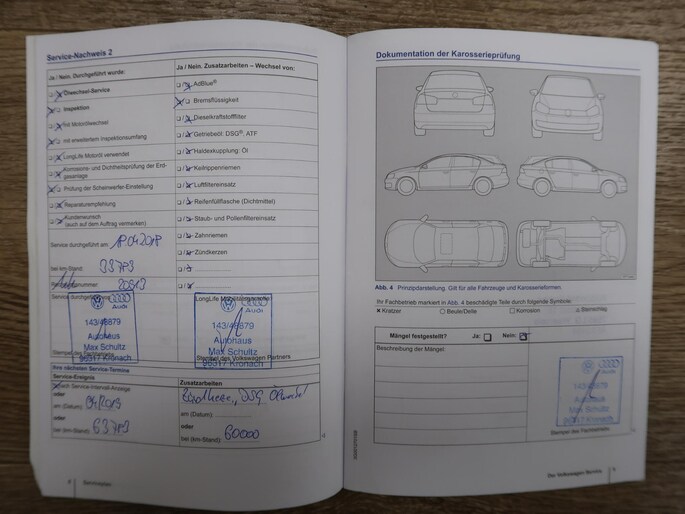 Service-Nachweis 2
Ja / Nein. Durchgeführt wurde:
Ölwechsel-Service
Inspektion
mit Motorölwechsel
mit erweitertem Inspektionsumfang
LongLife Motoröl verwendet
Korrosions- und Dichtheitsprüfung der Erdgasanlage
Prüfung der Scheinwerfer-Einstellung
Reparaturempfehlung
Kundenwunsch
(auch auf dem Auftrag vermerken)
Service durchgeführt am
bei km-Stand:
Service durchgeführt
143/48879
Autohaus
Max Schultz
96317 Kronach
Stempel des Fachbetriebs
Ja / Nein. Zusatzarbeiten – Wechsel von:
AdBlue®
Bremsflüssigkeit
Dieselkraftstofffilter
Getriebeöl: DSG®, ATF
Haldexkupplung: Öl
Keilrippenriemen
Luftfiltereinsatz
Reifenfüllflasche (Dichtmittel)
Staub- und Pollenfiltereinsatz
Zahnriemen
Zündkerzen
LongLife Mobilitätsgarantie
Audi
143/48879
Autohaus
Max Schultz
96317 Kronach
Stempel des Volkswagen Partners
Ihre nächsten Service-Termine
Service-Ereignis
nach Service-Intervall-Anzeige
oder
am (Datum):
oder
bei (km-Stand):
Zusatzarbeiten
DSG Ölwechsel
am (Datum):
oder
bei (km-Stand): 60000
Serviceplan
Dokumentation der Karosserieprüfung
Abb. 4 Prinzipdarstellung. Gilt für alle Fahrzeuge und Karosserieformen.
Ihr Fachbetrieb markiert in Abb. 4 beschädigte Teile durch folgende Symbole:
× Kratzer ○ Beule/Delle □ Korrosion △ Steinschlag
Mängel festgestellt? Ja: Nein:
Beschreibung der Mängel:
143/48879
Autohaus
Max Schultz
96317 Kronach
Stempel des Fachbetriebs